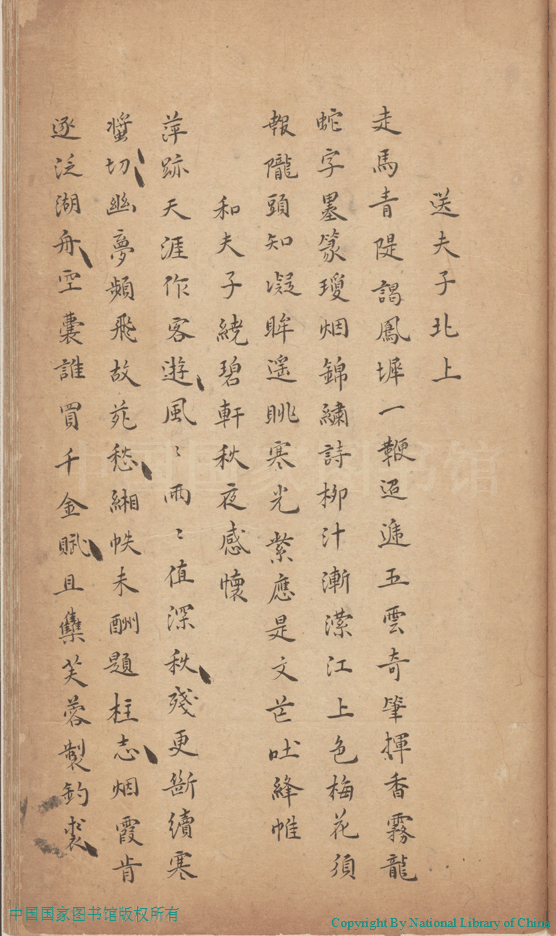 送夫子北上
走馬青隄謁鳳墀一鞭迢遞五雲奇筆揮香霧龍
蛇字墨篆瓊烟錦繡詩柳汁漸江上色梅花須
報隴頭知凝眸遙眺寒光紫應是文芒吐絳帷
和夫子繞碧軒秋夜感懷
萍跡天涯作客遊風〻雨〻值深秋殘更斷續寒
螿切幽夢頻飛故苑愁緗帙未酬題柱志烟霞肯
逐泛湖舟空囊誰買千金賦且芙蓉製釣裘
中国国家图书馆
中国国家图书馆版权所有
Copyright By National Library of China